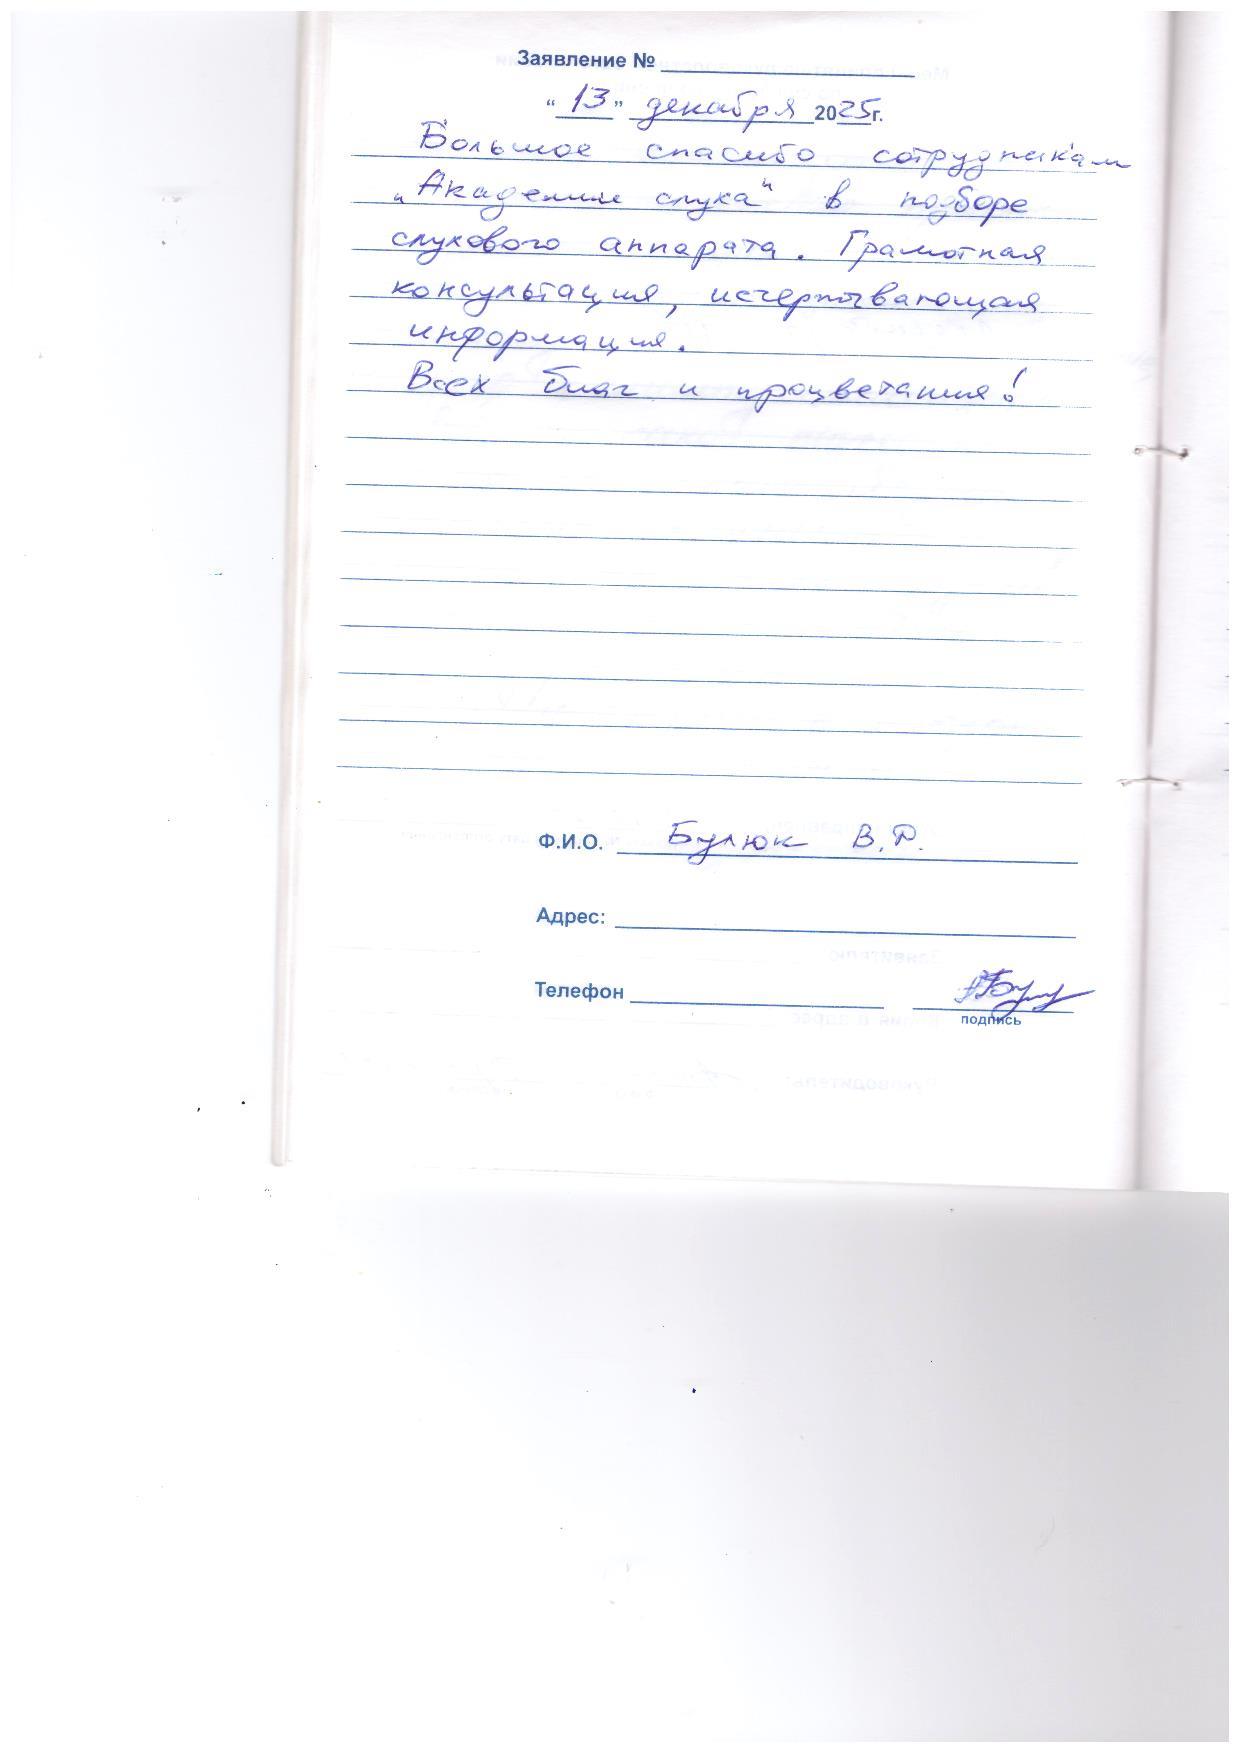 Заявление №
“ 13 ” декабря 2025г.
Большое спасибо сотрудникам
„Академии слуха“ в подборе
слухового аппарата. Грамотная
консультация, исчерпывающая
информация.
Всех благ и процветания!
Ф.И.О. Булюк В.Р.
Адрес:
Телефон
подпись